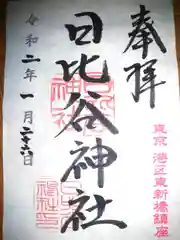 奉拝
東京 港区東新橋鎮座
日比谷神社
令和二年一月二十六日